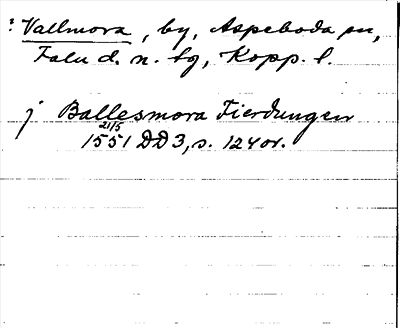 : Vallmora, by, Aspeboda sn,
Falu d. n. tg, Kopp. l.
j Ballesmora Fierdungen
21/5
1551 DD 3, s. 124 or.